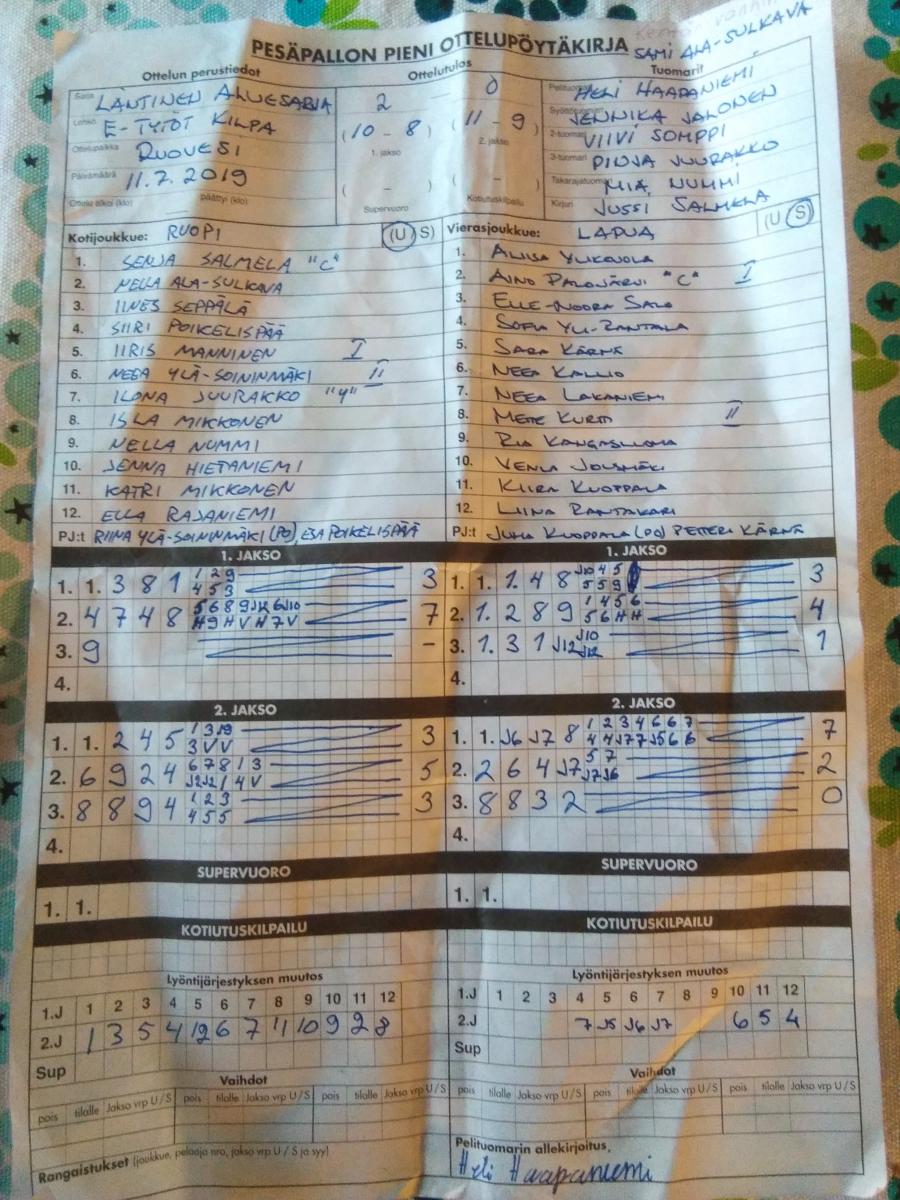 PESÄPALLON PIENI OTTELUPÖYTÄKIRJA
SAMI ALA-SULKAVA
Ottelun perustiedot
Ottelutulos
Tuomarit
Sarja LÄNTINEN ALUESARJA
Lohko E-TYTÖT KILPA
Ottelupaikka RUOVESI
Päivämäärä 11.7.2019
Ottelu alkoi (klo) päättyi (klo)
2 – 0
(10 – 8) (11 – 9)
1. jakso 2. jakso
( – ) ( – )
Supervuoro Kotiutuskilpailu
Pelituomari HELI HAAPANIEMI
Syöttötuomari JENNIKA JALONEN
2-tuomari VIIVI SOMPPI
3-tuomari PINJA JUURAKKO
Takarajatuomari MIA NUMMI
Kirjuri JUSSI SALMELA
Kotijoukkue: RUOPI (U S)
1. SENJA SALMELA "C"
2. NELLA ALA-SULKAVA
3. IINES SEPPÄLÄ
4. SIIRI POIKELISPÄÄ
5. IIRIS MANNINEN I
6. NEEA YLÄ-SOININMÄKI II
7. ILONA JUURAKKO "V"
8. ISLA MIKKONEN
9. NELLA NUMMI
10. JENNA HIETANIEMI
11. KATRI MIKKONEN
12. ELLA RAJANIEMI
PJ:t RIINA YLÄ-SOININMÄKI (PO), ESA POIKELISPÄÄ
Vierasjoukkue: LAPUA (U S)
1.
2. AINO PALOJÄRVI "C" I
3. ELLE-NOORA SALO
4. SOFIA YLI-RANTALA
5. SARA KÄRNÄ
6. NEEA KALLIO
7. NEEA LAKANIEMI
8. METE KURTTI II
9. RIA KANGASLUOMA
10. VENLA
11. KIIRA KUOPPALA
12. LIINA RANTAKARI
PJ:t JUHA KUOPPALA (PO) PETTERI KÄRNÄ
1. JAKSO
1. 1. 3 8 1 1 2 9 4 5 3 3
2. 4 7 4 8 7
3. 9 –
4.
1. JAKSO
1. 1. 1. 4 8 J10 4 5 5 5 9 3
2. 1. 2 8 9 1 4 5 6 5 6 H H 4
3. 1. 3 1 J12 J10 J12 1
4.
2. JAKSO
1. 1. 2 4 5 3 V V 3
2. 6 9 2 4 6 7 8 1 3 J2 J2 1 4 V 5
3. 8 8 9 4 1 2 3 4 5 5 3
4.
2. JAKSO
1. 1. J6 J7 8 1 2 3 4 6 6 7 4 4 J7 7 J5 6 6 7
2. 2 6 4 J7 5 7 J7 J6 2
3. 8 8 3 2 0
4.
SUPERVUORO
1. 1.
SUPERVUORO
1. 1.
KOTIUTUSKILPAILU
KOTIUTUSKILPAILU
Lyöntijärjestyksen muutos
1.J 1 2 3 4 5 6 7 8 9 10 11 12
2.J 1 3 5 4 12 6 7 11 10 9 2 8
Sup
Lyöntijärjestyksen muutos
1.J 1 2 3 4 5 6 7 8 9 10 11 12
2.J 7 J5 J6 J7 6 5 4
Sup
Vaihdot
pois tilalle Jakso vrp U/S pois tilalle Jakso vrp U/S pois tilalle Jakso vrp U/S
Vaihdot
pois tilalle Jakso vrp U/S pois tilalle Jakso vrp U/S pois tilalle Jakso vrp U/S
Rangaistukset (joukkue, pelaaja nro, jakso vrp U / S ja syy)
Pelituomarin allekirjoitus
Heli Haapaniemi